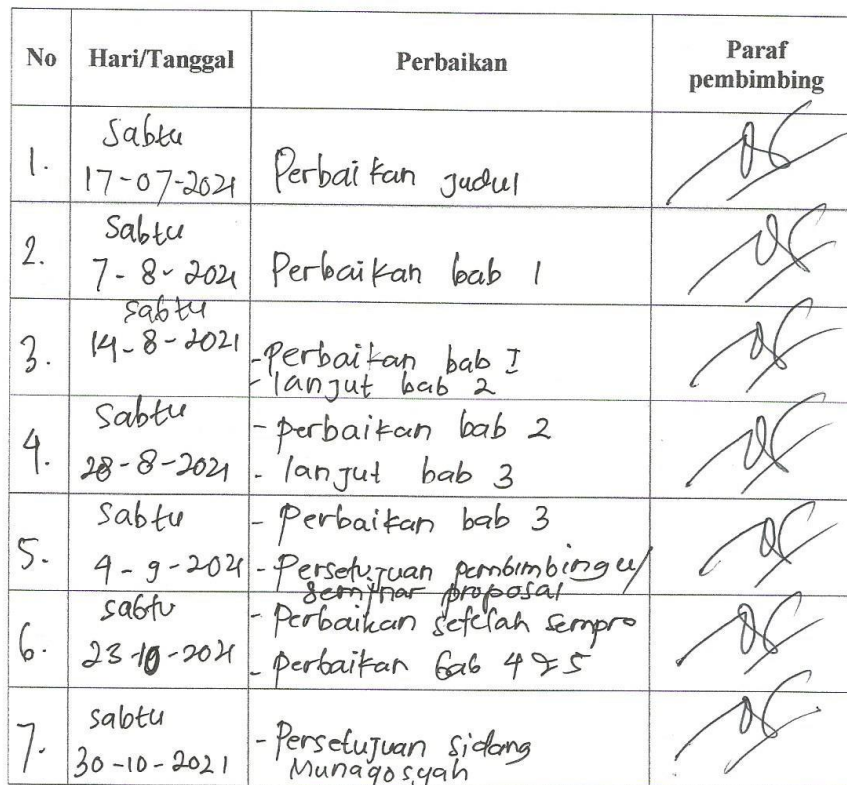 No Hari/Tanggal Perbaikan Paraf
pembimbing
1. Sabtu
17-07-2021 Perbaikan Judul
2. Sabtu
7-8-2021 Perbaikan bab 1
3. Sabtu
14-8-2021 -Perbaikan bab I
-lanjut bab 2
4. Sabtu - perbaikan bab 2
28-8-2021 - lanjut bab 3
5. Sabtu - Perbaikan bab 3
4-9-2021 - Persetujuan pembimbing u/
seminar proposal
6. Sabtu - Perbaikan setelah sempro
23-10-2021 - perbaikan bab 4 & 5
7. Sabtu
30-10-2021 - Persetujuan Sidang
Munaqosyah